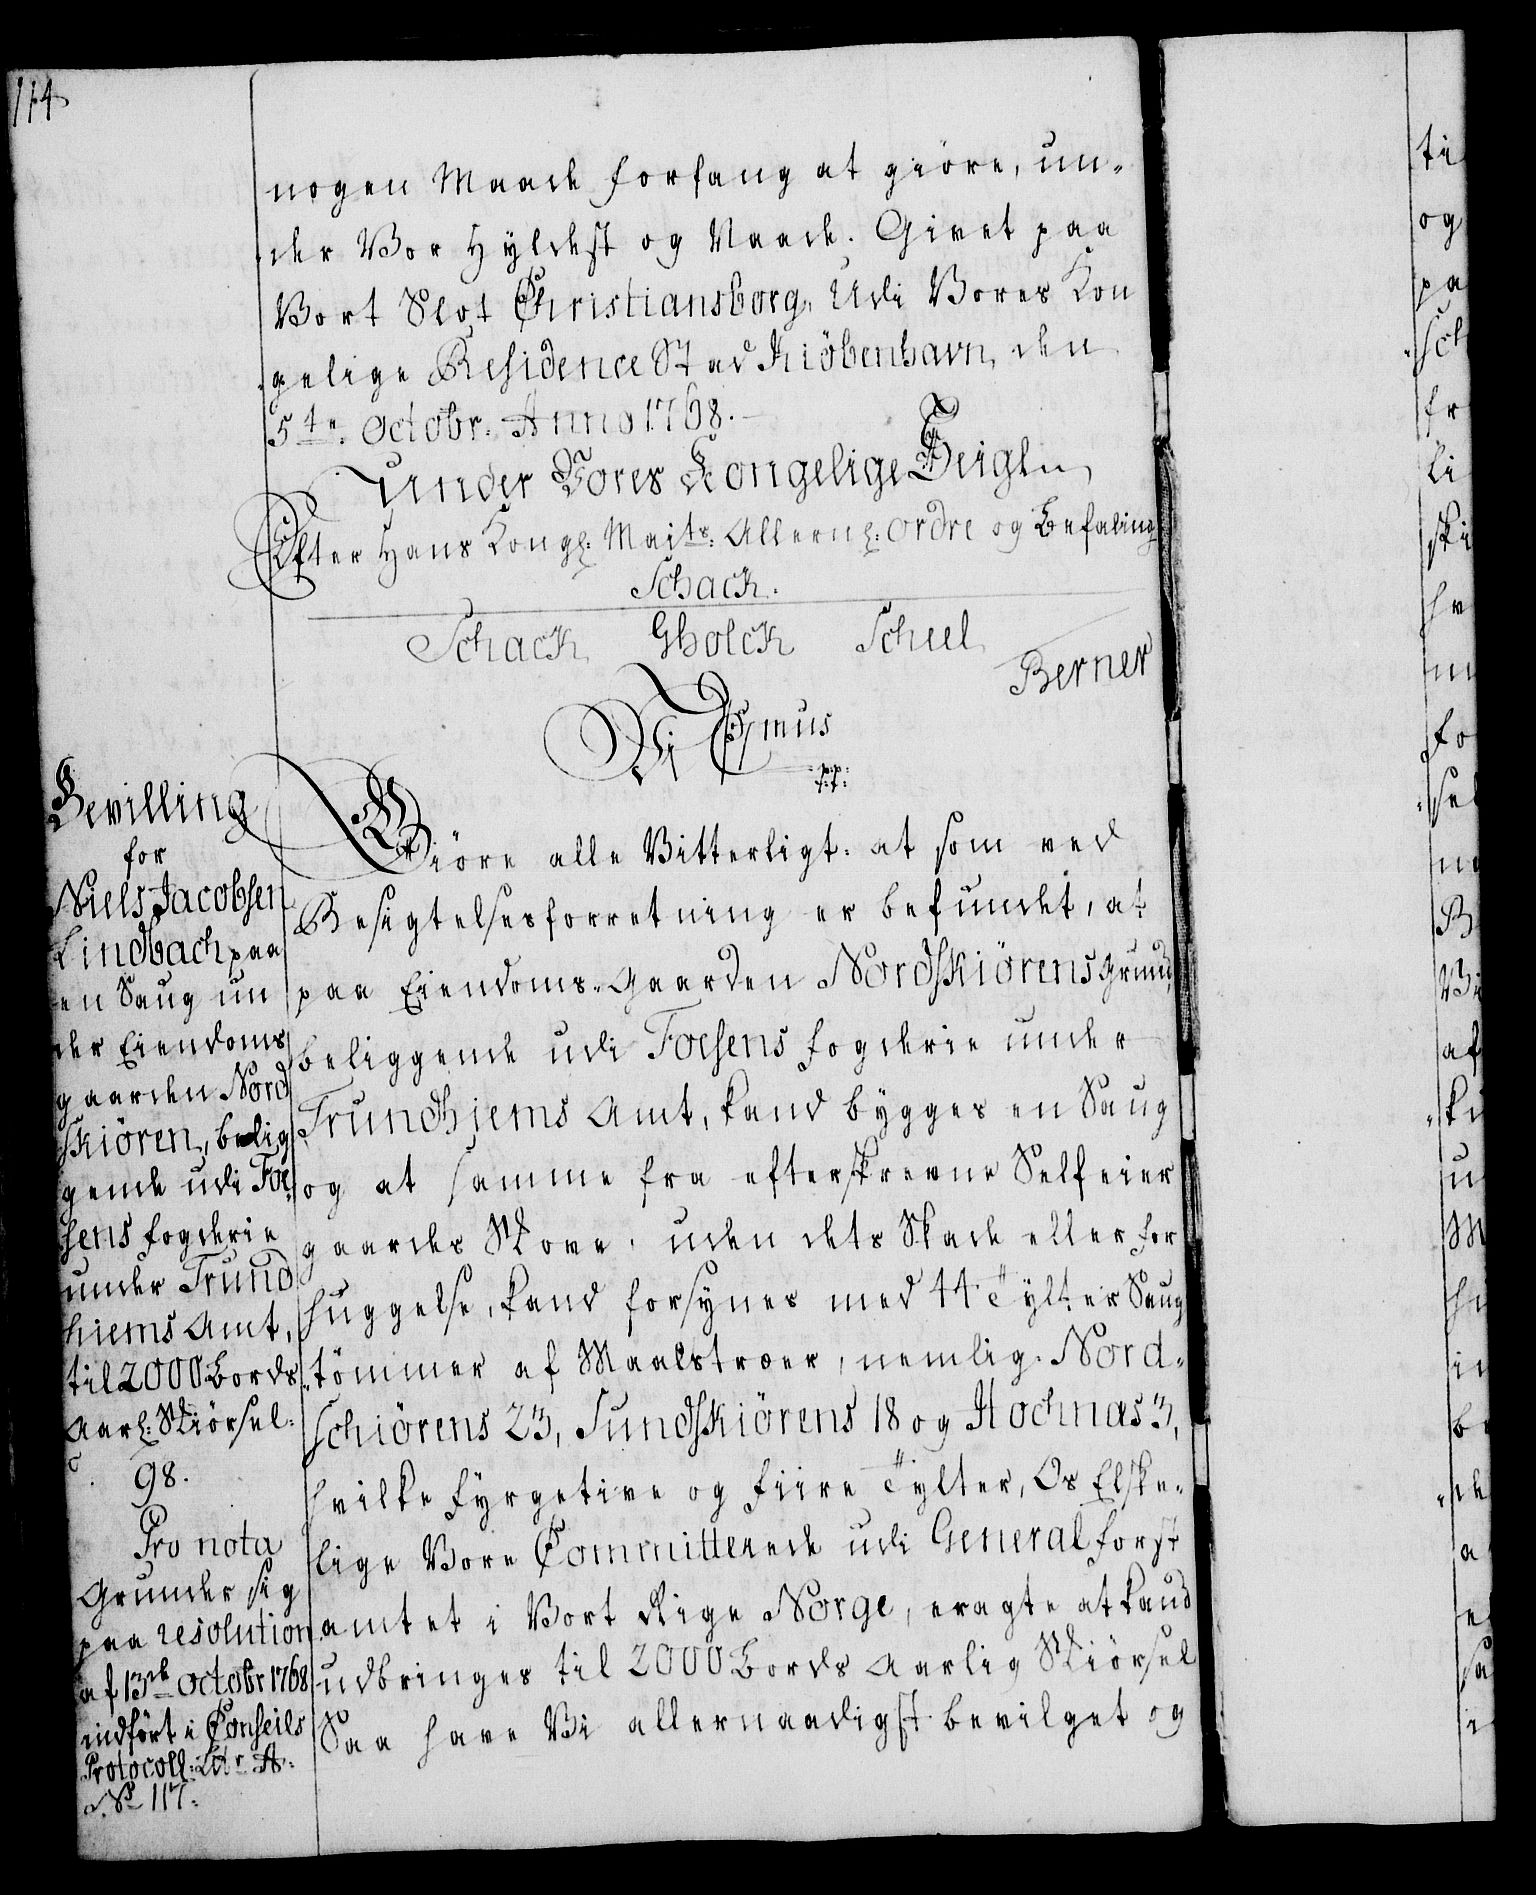 114
nogen Maade forfang at giöre, un-
der Vor Hyldest og Naade. Givet paa
Vort Slot Christiansborg, Udi Vores Kon
gelige Residence Stad Kiöbenhavn, den
5te. Octobr. Anno 1768.
Under Vores Kongelige Zeigln
Efter Hans Kongl: Maits: Allernl: Ordre og Befaling
Schack.
Schack Gholck Scheel
Berner
Vi Csmus
p:p:
t:t:
Bevilling
for
Niels Jacobsen
Lindbach paa
en Saug un
der Eiendoms
gaarden Nord
skiören, belig
gende udi Foe-
sens fogderie
under Trund
hiems Amt,
til 2000 Bords
Aarl: Skiörsel.
98.
Pro nota
Grunder sig
paa resolution
af 13de octobr 1768
indfört i Conseils
Protocoll: Litr A.
No 117.
Giöre alle Vitterligt: at som ved
Besigtelsesforretning er befundet, at
paa Eiendoms-Gaarden Nordskiörens Grund,
beliggende udi Foesens fogderie under
Trundhiems Amt, kand bygges en Saug
og at samme fra efterskrevne Selfeier
gaardes Skove, uden dets Skade eller for
huggelse, kand forsynes med 44 Tylter Saug
tömmer af Maalstroer, nemlig. Nord-
schiörens 23, Sundskiörens 18 og Hochnas 3,
hvilke Fyrgetive og Fiire Tylter, Os Elske-
lige Vore Committerede udi General forst
amtet i Vort Rige Norge, eragte at kand
udbringes til 2000 Bords Aarlig Skiörsel
Saa have Vi allernaadigst bevilget og
ti
og
pa
sch
fr
li
ski
hv
m
fo
sel
B
Vi
af
u
M
in
de
a
sa